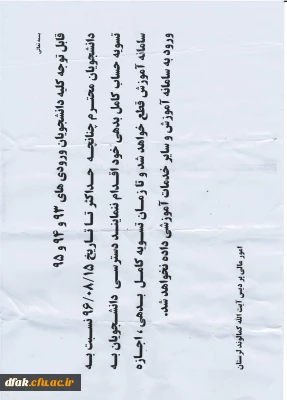 بسه تعالی
قابل توجه کلیه دانشجویان ورودی های ۹۳ و ۹۴ و ۹۵
دانشجویان محترم چنانچه حداکثر تا تاریخ ۹۶/۰۸/۱۵ نسبت به
تسویه حساب کامل بدهی خود اقدام ننمایند دسترسی دانشجویان به
سامانه آموزش قطع خواهد شد و تا زمان تسویه کامل بدهی، اجازه
ورود به سامانه آموزش و سایر خدمات آموزشی داده نخواهد شد.
امور مالی پردیس آیت الله کمالوند لرستان
dfak.cfu.ac.ir